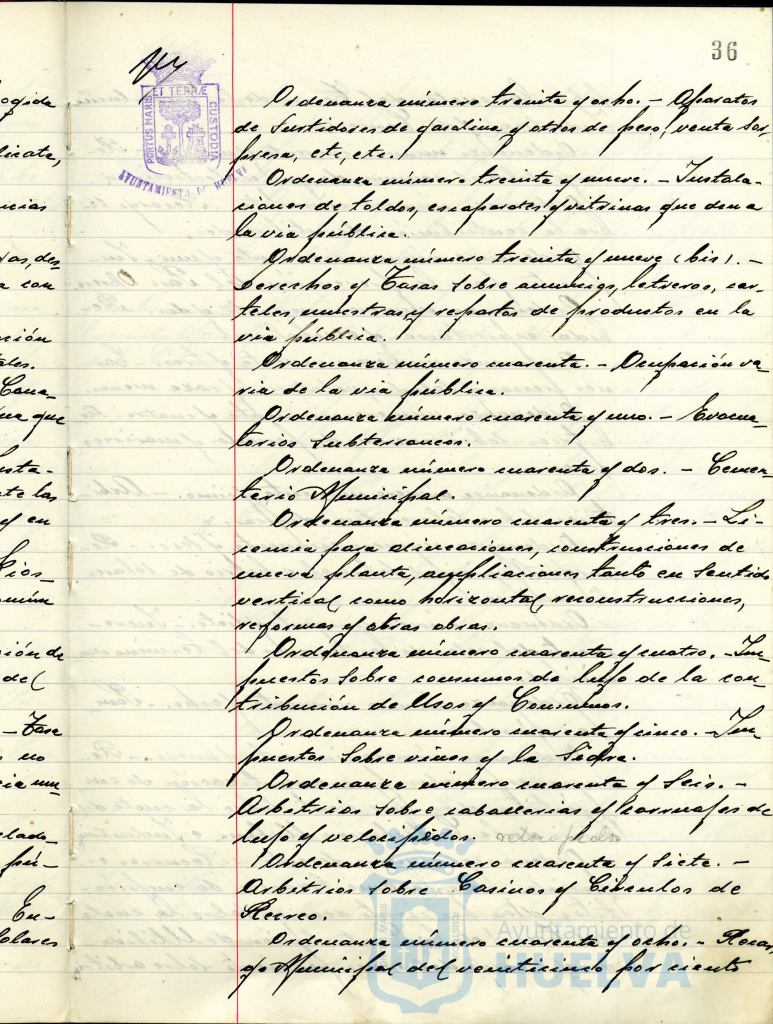 36
PORTUS MARIS ET TERRÆ CUSTODIA
AYUNTAMIENTO DE HUELVA
Ordenanza número treinta y ocho. - Aparatos
de Surtidores de gasolina y otros de peso, venta sor-
presa, etc, etc.
Ordenanza número treinta y nueve. - Instala-
ciones de toldos, escaparates y vitrinas que den a
la via pública.
Ordenanza número treinta y nueve (bis). -
Derechos y Tasas sobre anuncios, letreros, car-
teles, muestras y repartos de productos en la
via pública.
Ordenanza número cuarenta. - Ocupación va-
ria de la via pública.
Ordenanza número cuarenta y uno. - Evacua-
torios Subterraneos.
Ordenanza número cuarenta y dos. - Cemen-
terio Municipal.
Ordenanza número cuarenta y tres. - Li-
cencia para alineaciones, construcciones de
nueva planta, ampliaciones tanto en sentido
vertical como horizontal, reconstrucciones,
reformas y otras obras.
Ordenanza número cuarenta y cuatro. - Im-
puestos sobre consumos de lujo de la con-
tribución de Usos y Consumos.
Ordenanza número cuarenta y cinco. - Im-
puestos sobre vinos y la Sidra.
Ordenanza número cuarenta y seis. -
Arbitrios sobre caballerias y carruajes de
lujo y velocipidos.
Ordenanza número cuarenta y siete. -
Arbitrios sobre Casinos y Círculos de
Recreo.
Ordenanza número cuarenta y ocho. - Recar-
go Municipal del veinticinco por ciento
Ayuntamiento de
HUELVA
ogida
licate,
ncias
vas, des-
a con
ción
ales.
Cana-
na que
usta-
te las
y en
Sios-
omún
ión de
del
- Tasa
s no
cia mu-
elado-
pú-
En-
Solares